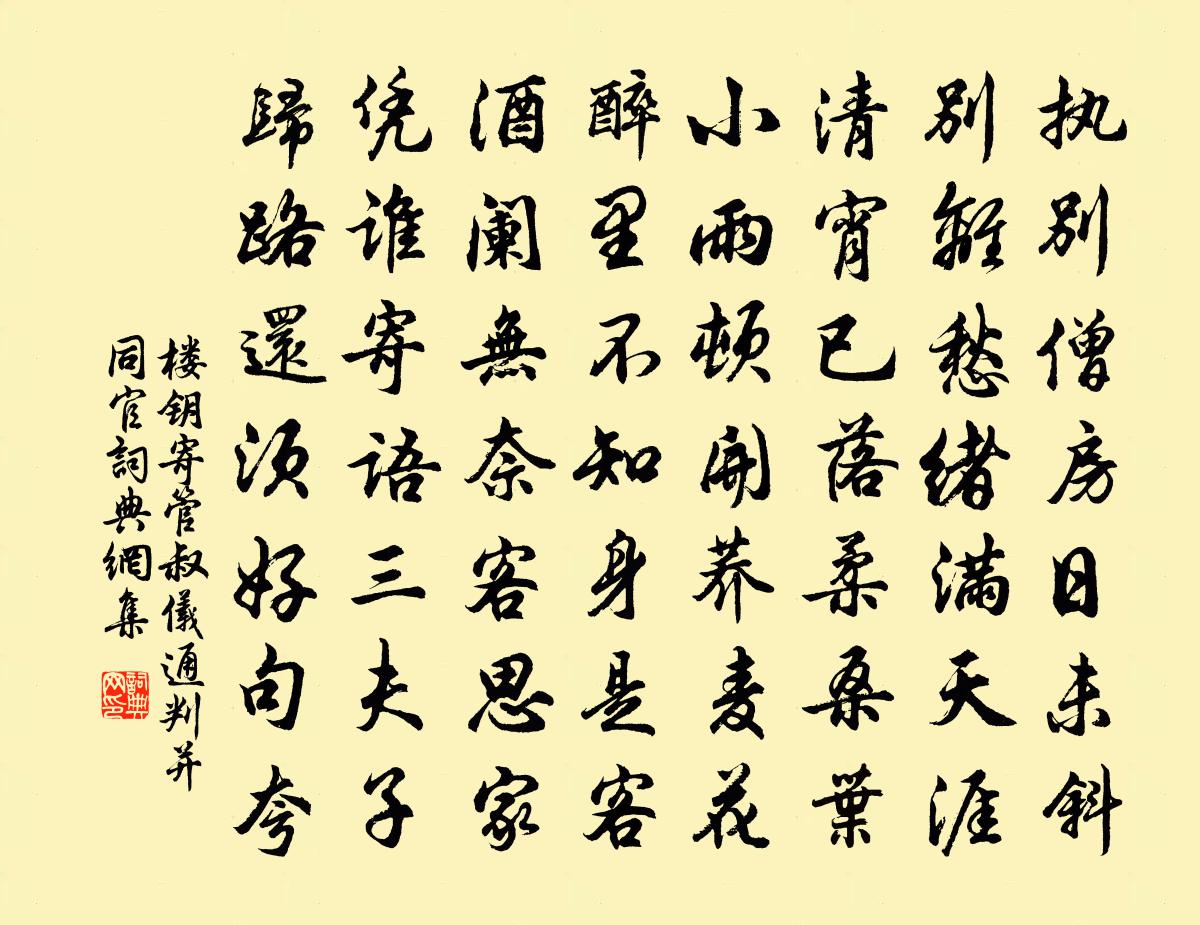 执别僧房日未斜
别離愁绪满天涯
清宵已落柔桑葉
小雨顿開荞麦花
醉里不知身是客
酒阑無奈客思家
凭谁寄语三夫子
歸路還须好句夸
楼钥寄管叔儀通判并
同官詞典網集
詞典网印